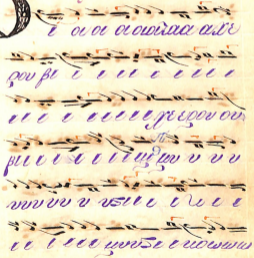 ι οι οι οι οιοιταα α χε
ρου βι ι ι ι ι ι ι ι
ι ι ι ι ι ι ι ι χε ρου ου
βι ι ι ι ι ι ι ιμ μυ υ υ υ
υυυυυ υ υστι ι ι ι ι
ι ι ι ι ι μυυστι ι ικωωωω